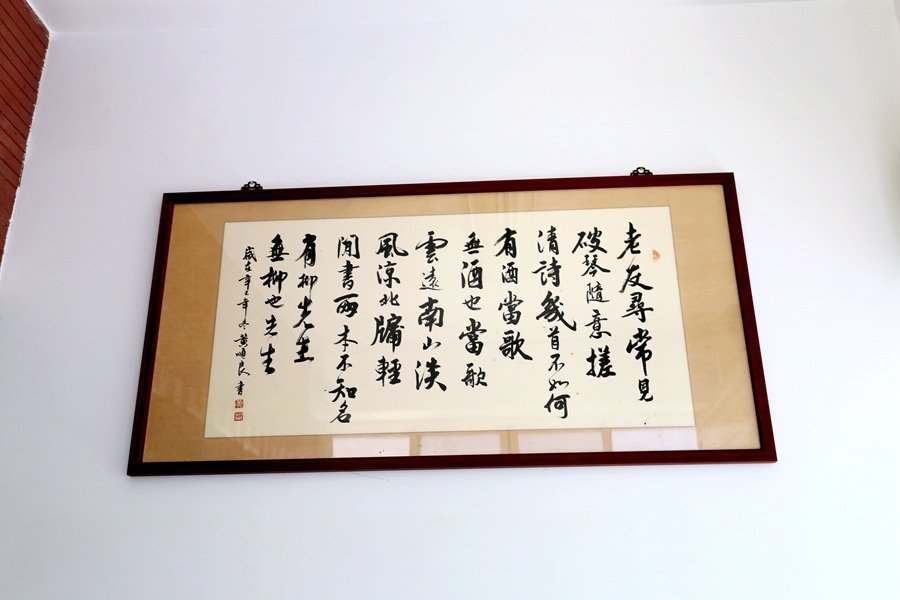 老友尋常見
破琴隨意搓
清詩幾首不如何
有酒當歌
無酒也當歌
雲遠南山淡
風涼北牖輕
閒書兩本不知名
有柳先生
無柳也先生
歲在辛丑年冬黃順良書